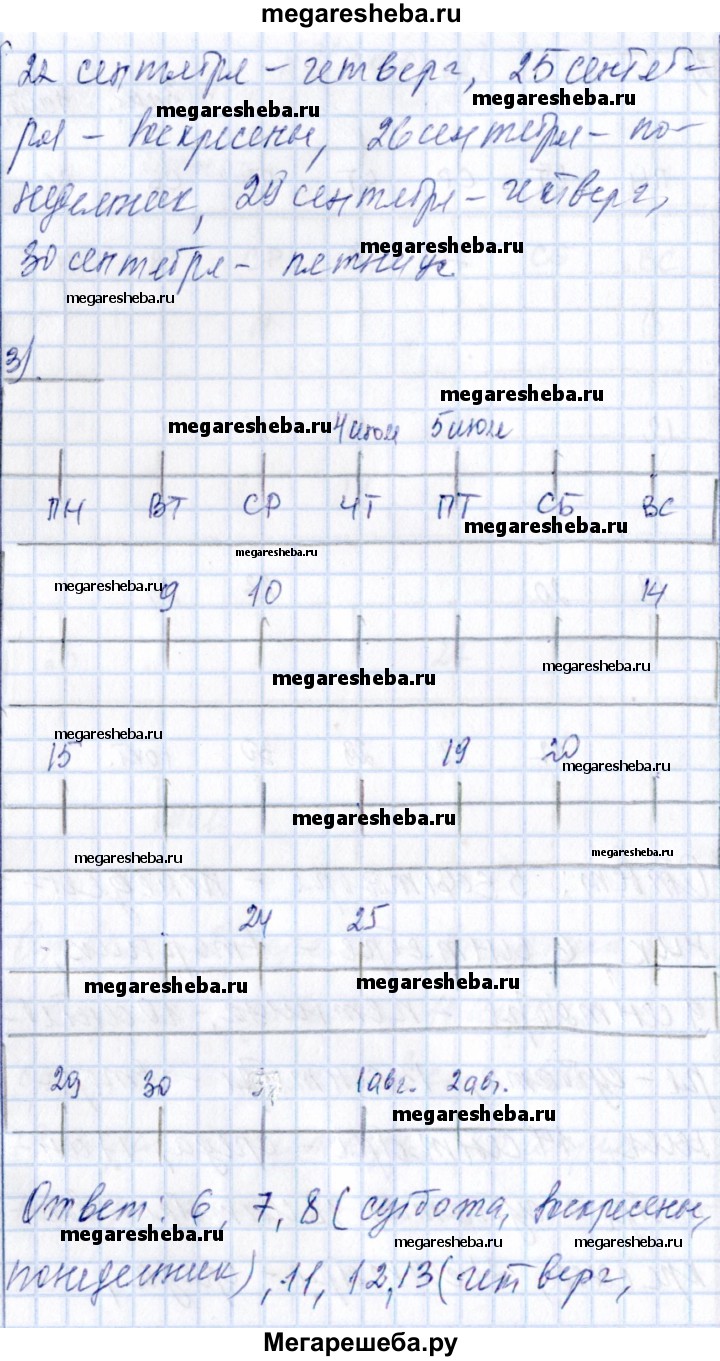 megaresheba.ru
22 сентября - четверг, 25 сентяб-
megaresheba.ru megaresheba.ru
ря - воскресенье, 26 сентября - по-
недельник, 29 сентября - четверг,
megaresheba.ru
30 сентября - пятница.
megaresheba.ru
3)
megaresheba.ru
megaresheba.ru 4 июля 5 июля
ПН ВТ СР ЧТ ПТ СБ ВС
megaresheba.ru
megaresheba.ru
megaresheba.ru 9 10 14
megaresheba.ru
megaresheba.ru
megaresheba.ru
15 19 20
megaresheba.ru
megaresheba.ru
megaresheba.ru megaresheba.ru
24 25
megaresheba.ru megaresheba.ru
29 30 1 авг. 2 авг.
megaresheba.ru
Ответ: 6, 7, 8 (суббота, воскресенье,
megaresheba.ru megaresheba.ru megaresheba.ru
понедельник), 11, 12, 13 (четверг,
Мегарешеба.ру